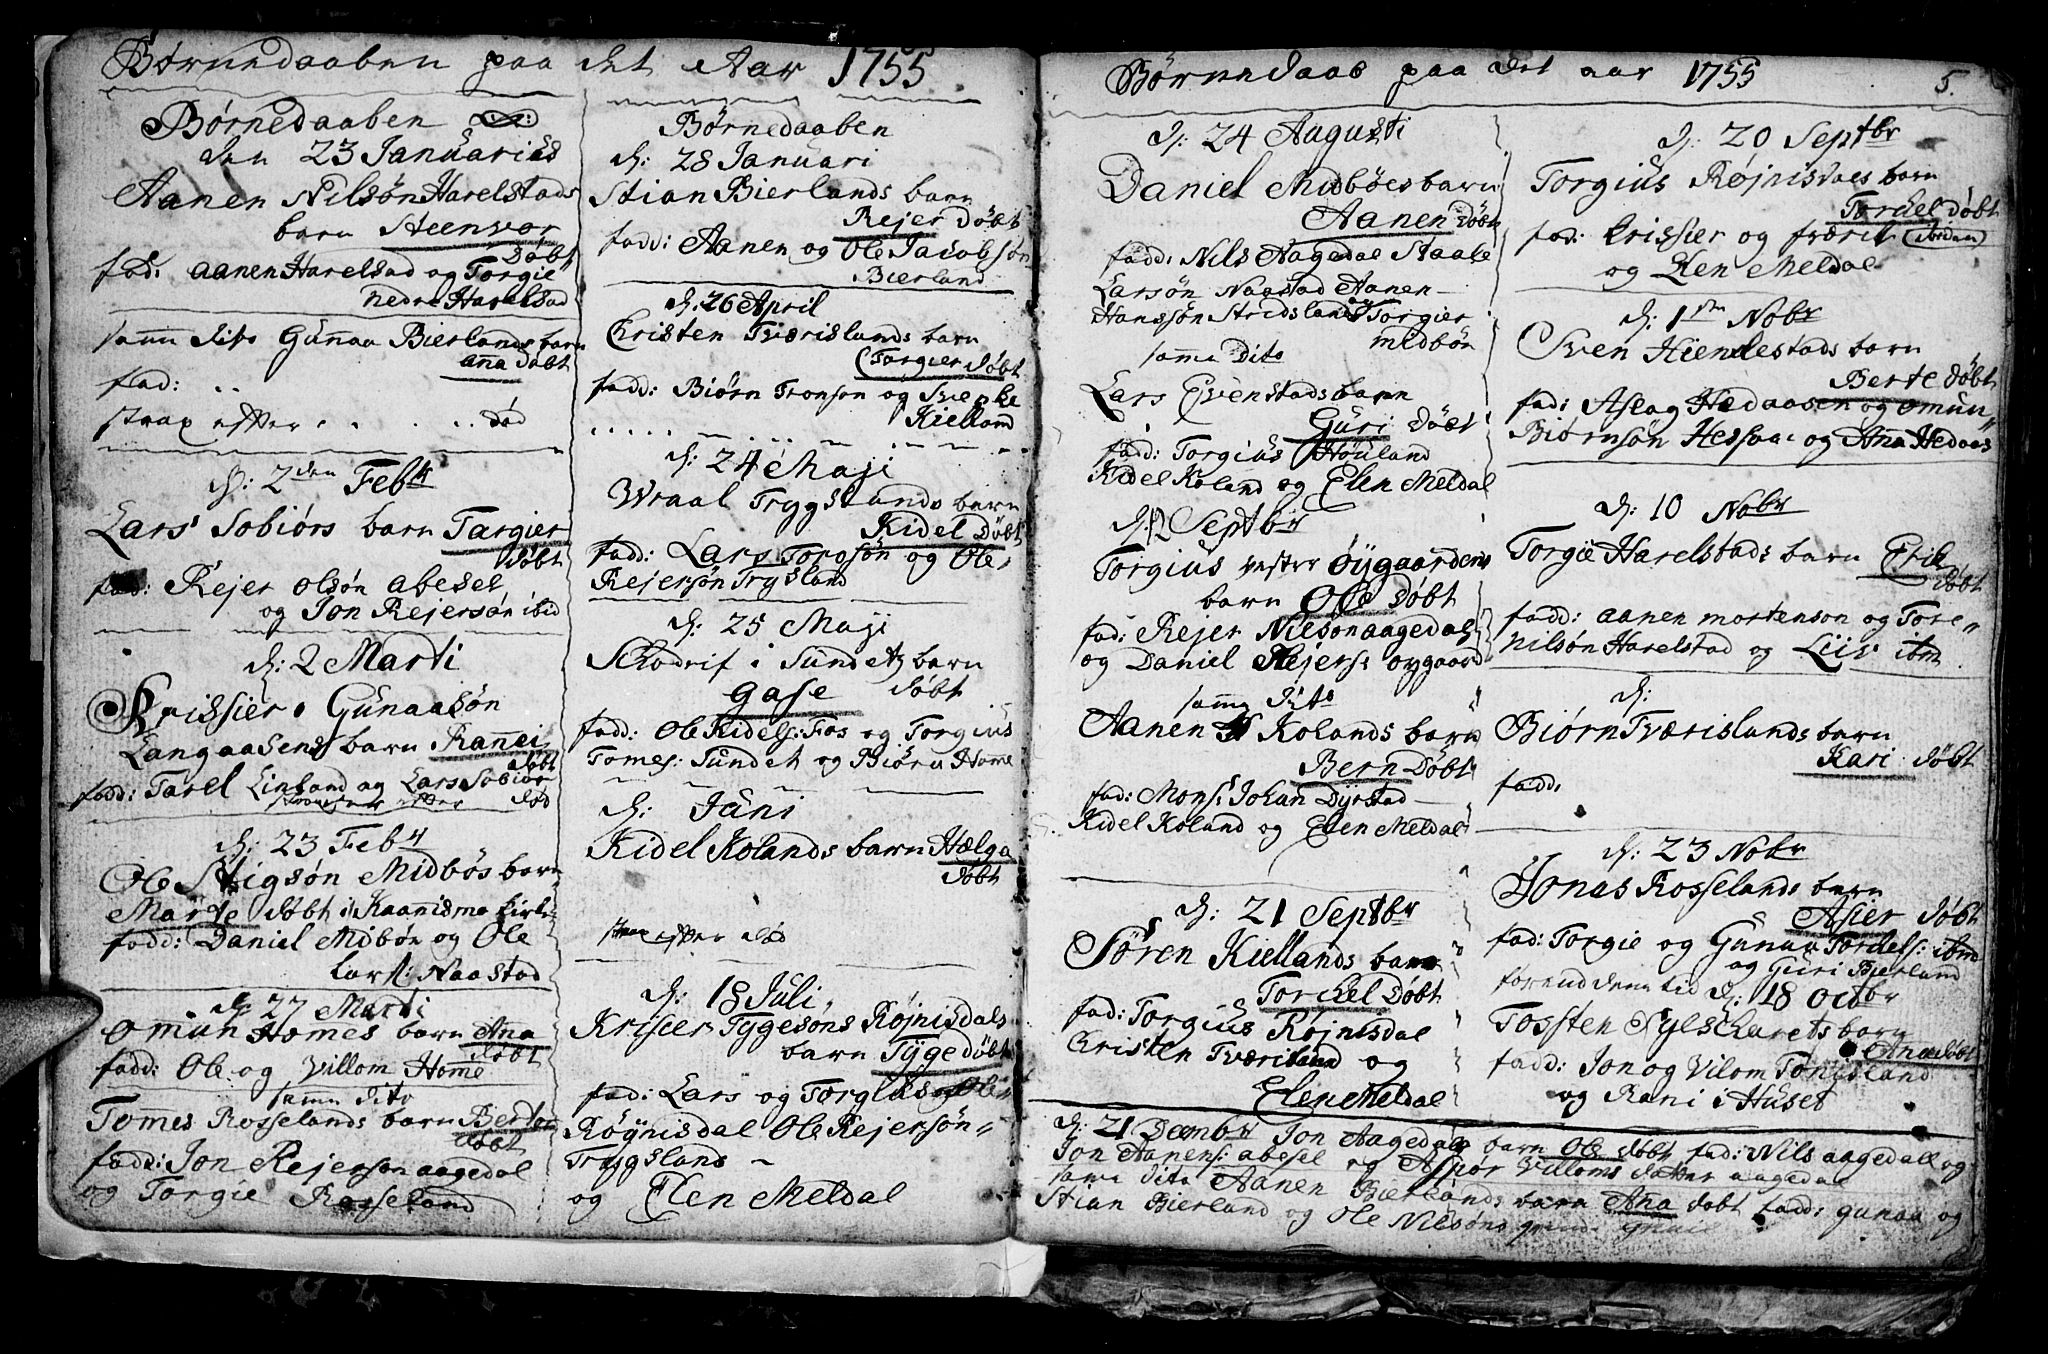 Børnedaaben paa det Aar 1755
Børnedaaben
den 23 Januarius
Aanen Nilsøn Harelstads
barn Steenvor
Døbt
fad: aanen Harelstad og Torgie
nedre Harelstad
samme dito Gunaa Bierlands barn
ana døbt
fad: . .
strax efter . . . . . død
d: 2den Feb
Lars Sobiørs barn Targier
døbt
fad: Rejer olsøn abesel
og Jon Rejersøn ibid
d: 2 Marti
Krissier Gunaasøn
Langaasens barn Rannei
døbt
fadd: Tarel Linland og Lars Sobiør
efter død
d: 23 Feb
Ole Stigsøn Midbøs barn
Marte døbt i Kaanisma kirke
fadd: Daniel Midbøn og Ole
Lars: Naastad
d: 27 Marti
omun Homes barn Ana
døbt
fadd: Ole og Villom Home
samme dito
Tomes Rosselands barn Berte
døbt
fadd: Jon Rejersøn aagedal
og Torgie Rosseland
Børnedaaben
d: 28 Januari
Stian Bierlands barn
Rejer Døbt
fadd: Aanen og Ole Jacobsøn
Bierland
d: 26 April
Christen Tværislands barn
Torgier døbt
fadd: Biørn Tronson og Svenke
Kielland
d: 24 Maji
Wraal Trygslands barn
Kidel Døbt
fadd: Lars Torosøn og Ole
Rejersøn Trysland
d: 25 Maji
Schodrif i Sundetz barn
Gase døbt
fadd: Ole Kidels: Fos og Torgius
Tomes: Sundet og Biørn Home
d: Juni
Kidel Kolands barn Hælga
døbt
efter død
d: 18 Juli
Kriscer Tygesøns Røjnisdals
barn Tyge døbt
fad: Lars og Torgius og Ole
Røgnisdal Ole Rejersøn
Trygsland
og Elen Meldal
Børnedaab paa det aar 1755 5.
d: 24 Augusti
Daniel Midbøes barn
Aanen Døbt
fadd: Nils Aagedal Staale
Larsøn Naastad Aanen
Hanssøn Stridsland Torgier
midbøn
samme Dito
Lars Evenstads barn
Guri døbt
fadd: Torgius Høuland
Kidel Koland og Elen Meldal
d: 12 Septbr
Torgius vester øygaardens
barn Ole Døbt
fad: Rejer Nilsøn aagedal
og Daniel Rejers: øygaard
samme Dito
Aanen Kolands barn
Bern Døbt
fad: Mons: Johan Dyrstad
Kidel Koland og Elen Meldal
d: 21 Septbr
Søren Kiellands barn
Torchel Døbt
fad: Torgius Røjnisdal
Christen Tværisland og
Elen Meldal
d: 20 Septbr
Torgius Røjnisdaes barn
Torchel døbt
fad: Crissier og
og Elen Meldal
d: 1ste Nobr
Sven Hiendestads barn
Berte døbt
fad: Aslag Hedaasen og omun
Biørnsøn Hessaae og Anna Hedaas
d: 10 Nobr
Torgie Harelstads barn Erik
døbt
fadd: aanen mortenson og Tore
Nilsøn Harelstad og Liiv ibm
d:
Biørn Tværislands barn
Kari døbt
fadd:
d: 23 Nobr
Jonas Rosselands barn
Asier døbt
fad: Torgie og Gunaa Torkels: ibm
og Guri Bierland
forud dem tid d: 18 octbr
Tossten Sylskarets barn
Ana døbt
fadd: Jon og Vilom Tonisland
og Rani i Huset
d: 21 Decembr Jon Aagedals barn Ole døbt fad: Nils aagedal og
Jon Aanens: abesel og Aspør Villoms datter aagedal
samme dito Aanen Bierlands barn Ana døbt fadd: gunaa og
Stian Bierland og Ole Nilsøns